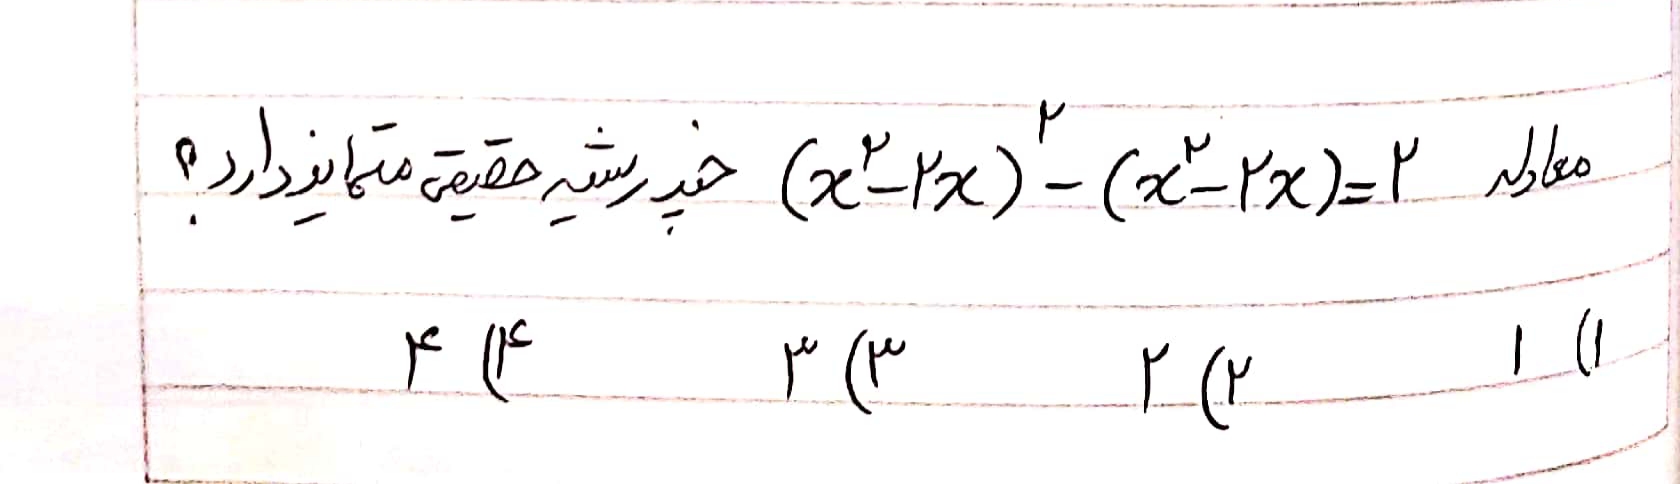 معادله (x²-۲x)² - (x²-۲x)=۲ چند ریشه حقیقی متمایز دارد؟
۱) ۱ ۲) ۲ ۳) ۳ ۴) ۴